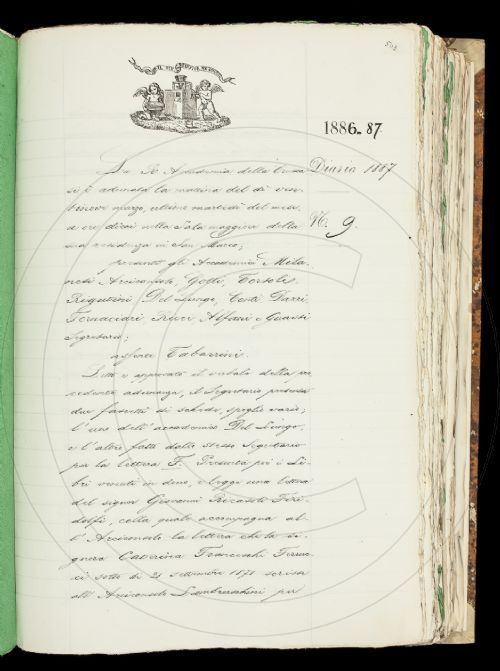 503
1886-87.
La R. Accademia della Crusca
si è adunata la mattina del dì ven-
tinove marzo, ultimo martedì del mese,
a ore dieci nella Sala maggiore della
sua residenza in San Marco;
presenti gli Accademici Mila-
nesi Arciconsolo, Gotti, Tortoli,
Rigutini, Del Lungo, Conti, Dazzi,
Fornaciari, Ricci Alfani e Guasti
Segretario;
assente Tabarrini.
Letto e approvato il verbale della pre-
cedente adunanza, il Segretario presenta
due fascetti di schede, spoglio vario;
l'uno dell'accademico Del Lungo,
e l'altro fatto dallo stesso Segretario
per la lettera F. Presenta poi i Li-
bri venuti in dono, e legge una lettera
del signor Giovanni Ricasoli Fir-
idolfi, colla quale accompagna al-
l'Arciconsolo la lettera che la si-
gnora Caterina Franceschi Ferruc-
ci sotto dì 21 settembre 1871 scrisse
all'Arciconsolo Lambruschini per
Diario 1887
N. 9.